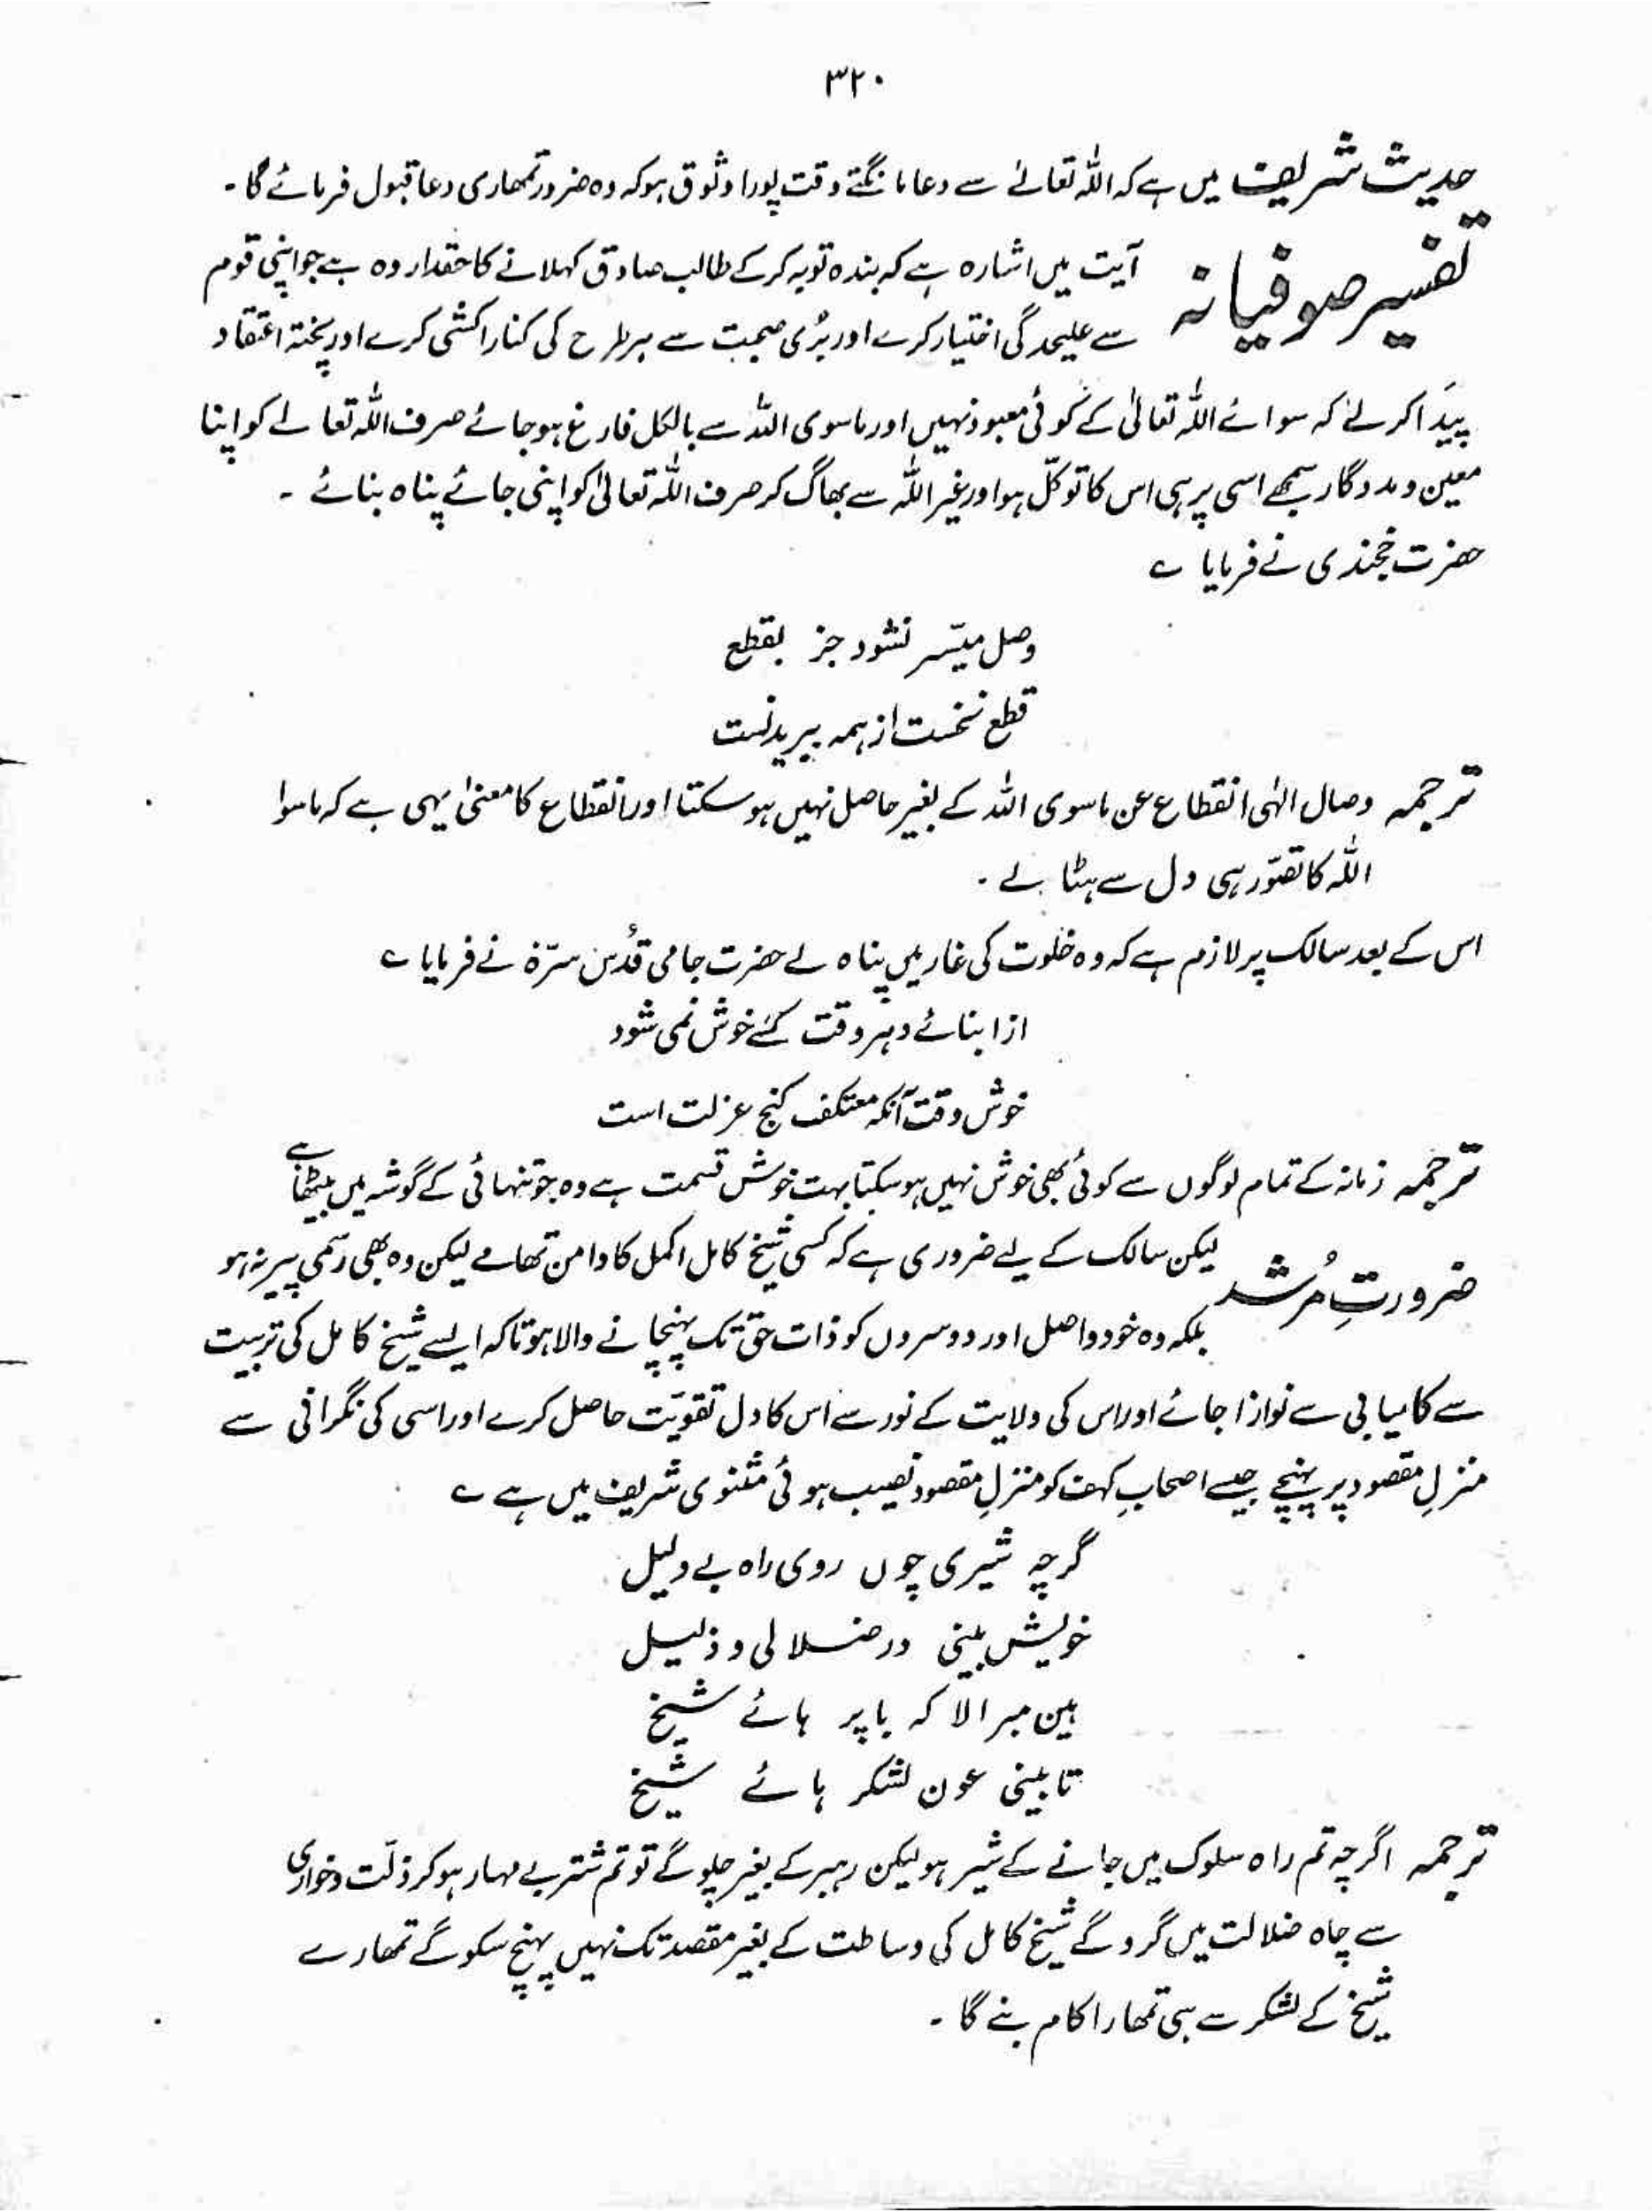 ۳۲۰
حدیث شریف میں ہے کہ اللہ تعالےٰ سے دعا مانگتے وقت پورا وثوق ہو کہ وہ ضرور تمھاری دعا قبول فرمائے گا۔
تفسیر صوفیانہ آیت میں اشارہ ہے کہ بندہ توبہ کرکے طالب صادق کہلانے کا حقدار وہ ہے جو اپنی قوم
سے علیحدگی اختیار کرے اور بُری صحبت سے ہر طرح کی کنارا کشی کرے اور پختہ اعتقاد
پیَدا کرلے کہ سوائے اللہ تعالیٰ کے کوئی معبود نہیں اور ماسوی اللہ سے بالکل فارغ ہو جائے صرف اللہ تعالےٰ کو اپنا
معین و مددگار سمجھے اسی پر ہی اس کا توکّل ہو اور غیر اللہ سے بھاگ کر صرف اللہ تعالیٰ کو اپنی جائے پناہ بنائے ۔
حضرت خجندی نے فرمایا ؎
وصل میّسر نشود جز بقطع
قطع نخست از ہمہ ببریدنست
ترجمہ وصال الٰہی انقطاع عن ماسوی اللہ کے بغیر حاصل نہیں ہو سکتا اور انقطاع کا معنیٰ یہی ہے کہ ماسوا
اللہ کا تصوّر ہی دل سے ہٹا لے ۔
اس کے بعد سالک پر لازم ہے کہ وہ خلوت کی غار میں پناہ لے حضرت جامی قدُس سرّہ نے فرمایا ؎
از ابنائے دہر وقت کسے خوش نمی شود
خوش وقت آنکہ معتکف کنج عزلت است
ترجمہ زمانہ کے تمام لوگوں سے کوئی بھی خوش نہیں ہو سکتا بہت خوش قسمت ہے وہ جو تنہائی کے گوشہ میں بیٹھا ہے
ضرورتِ مُرشد لیکن سالک کے لیے ضروری ہے کہ کسی شیخ کامل اکمل کا دامن تھامے لیکن وہ بھی رسمی پیر نہ ہو
بلکہ وہ خود واصل اور دوسروں کو ذات حق تک پہنچانے والا ہو تاکہ ایسے شیخ کامل کی تربیت
سے کامیابی سے نوازا جائے اور اس کی ولایت کے نور سے اس کا دل تقویّت حاصل کرے اور اسی کی نگرانی سے
منزلِ مقصود پر پہنچے جیسے اصحابِ کہف کو منزلِ مقصود نصیب ہوئی مثنوی شریف میں ہے ؎
گرچہ شیری چوں روی راہ بے دلیل
خویش بینی در ضلالی و ذلیل
ہین مبر الا کہ با پر ہائے شیخ
تا بینی عون لشکر ہائے شیخ
ترجمہ اگرچہ تم راہ سلوک میں جانے کے شیر ہو لیکن رہبر کے بغیر چلو گے تو تم شتر بے مہار ہو کر ذلّت و خواری
سے چاہ ضلالت میں گرو گے شیخ کامل کی وساطت کے بغیر مقصد تک نہیں پہنچ سکو گے تمھارے
شیخ کے لشکر سے ہی تمھارا کام بنے گا ۔